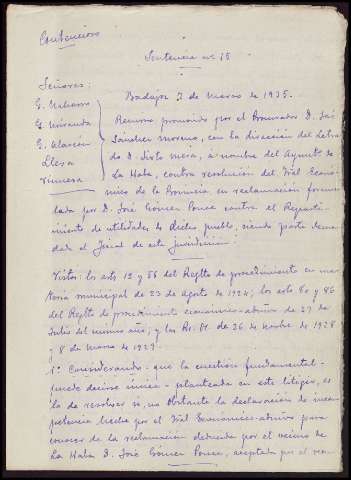 Contencioso
Sentencia nº 15
Señores:
Badajoz 7 de Marzo de 1935.
G. Miranda
Recurso promovido por el Procurador D. José
G. Alarcón
Sánchez Moreno, con la dirección del Letra-
do D. Sixto Mera, a nombre del Ayunto de
Llera
La Haba, contra resolución del Tral Econó-
mico de la Provincia en reclamación formu-
lada por D. José Gómez Ponce contra el Reparti-
miento de utilidades de dicho pueblo, siendo parte deman-
dada el Fiscal de esta Jurisdicción:
Vistos: los arts 12 y 58 del Reglto de procedimiento en ma-
teria municipal de 23 de Agosto de 1924; los arts 80 y 86
del Reglto de procedimiento económico-advo de 29 de
Julio del mismo año; y las Rs. Os. de 26 de 1928
y 8 de Marzo de 1929.
1º Considerando: que la cuestión fundamental -
puede decirse única - planteada en este litigio, es
la de resolver si, no obstante la declaración de incom-
petencia hecha por el Tral Económico-advo para
conocer de la reclamación deducida por el vecino de
La Haba D. José Gómez Ponce, aceptada por el